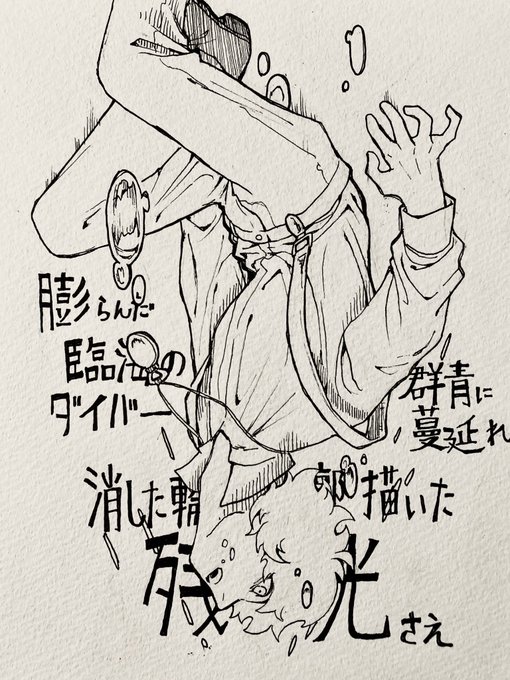 膨らんだ
臨海の
ダイバー
群青に
蔓延れ
消した輪 描いた
残光さえ